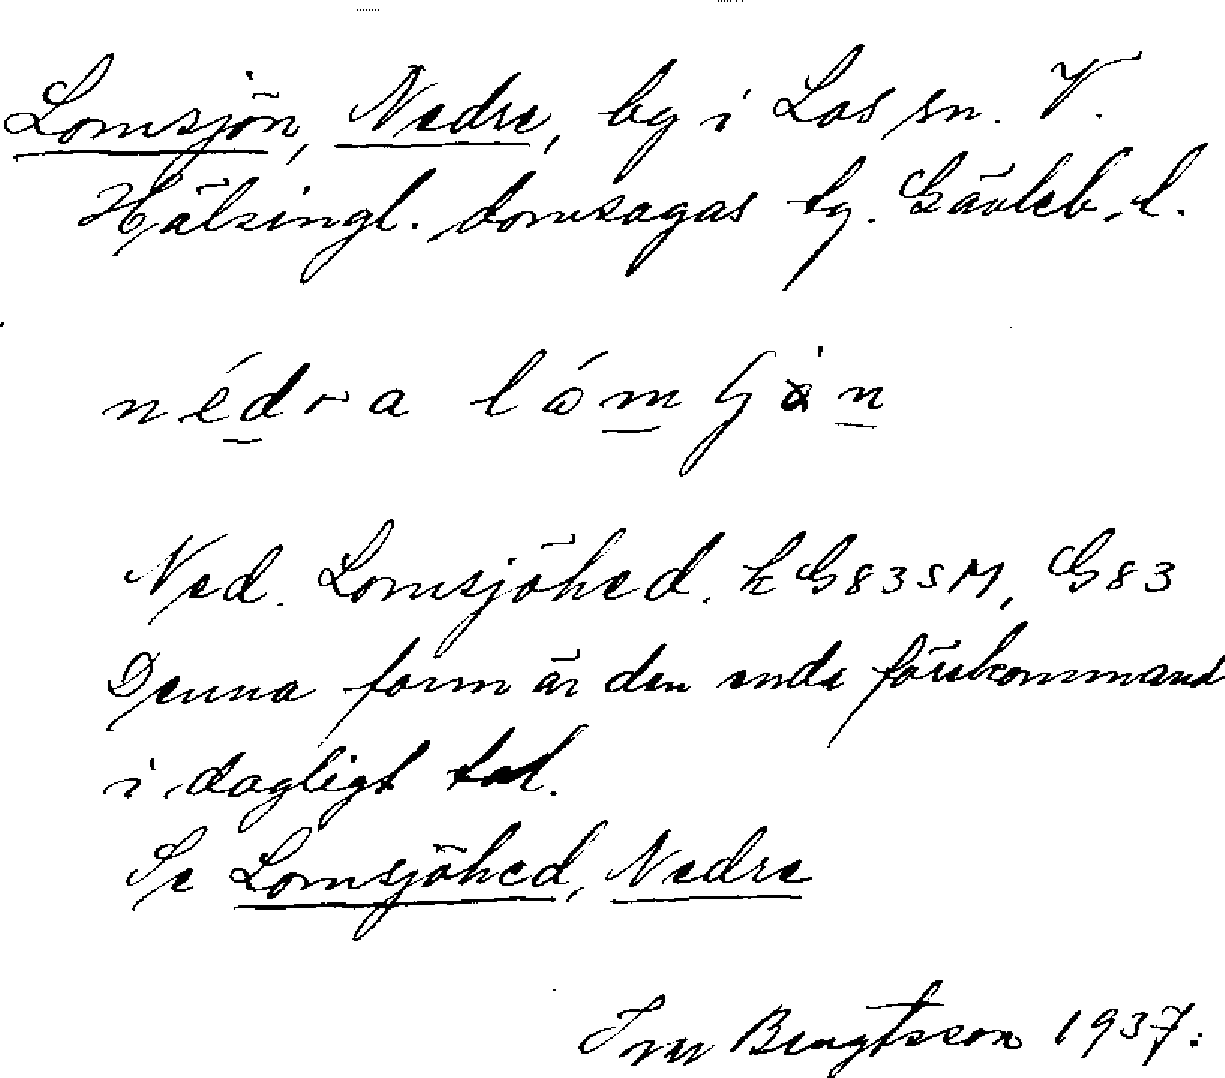 Lomsjön, Nedre, by i Los sn. V.
Hälsingl. domsagas tg. Gävleb. l.
nédra
Ned. Lomsjöhed. k G 83 SM, G 83
Denna form är den enda förekommand
i dagligt tal.
Se Lomsjöhed, Nedre
Bengtsson 1937.